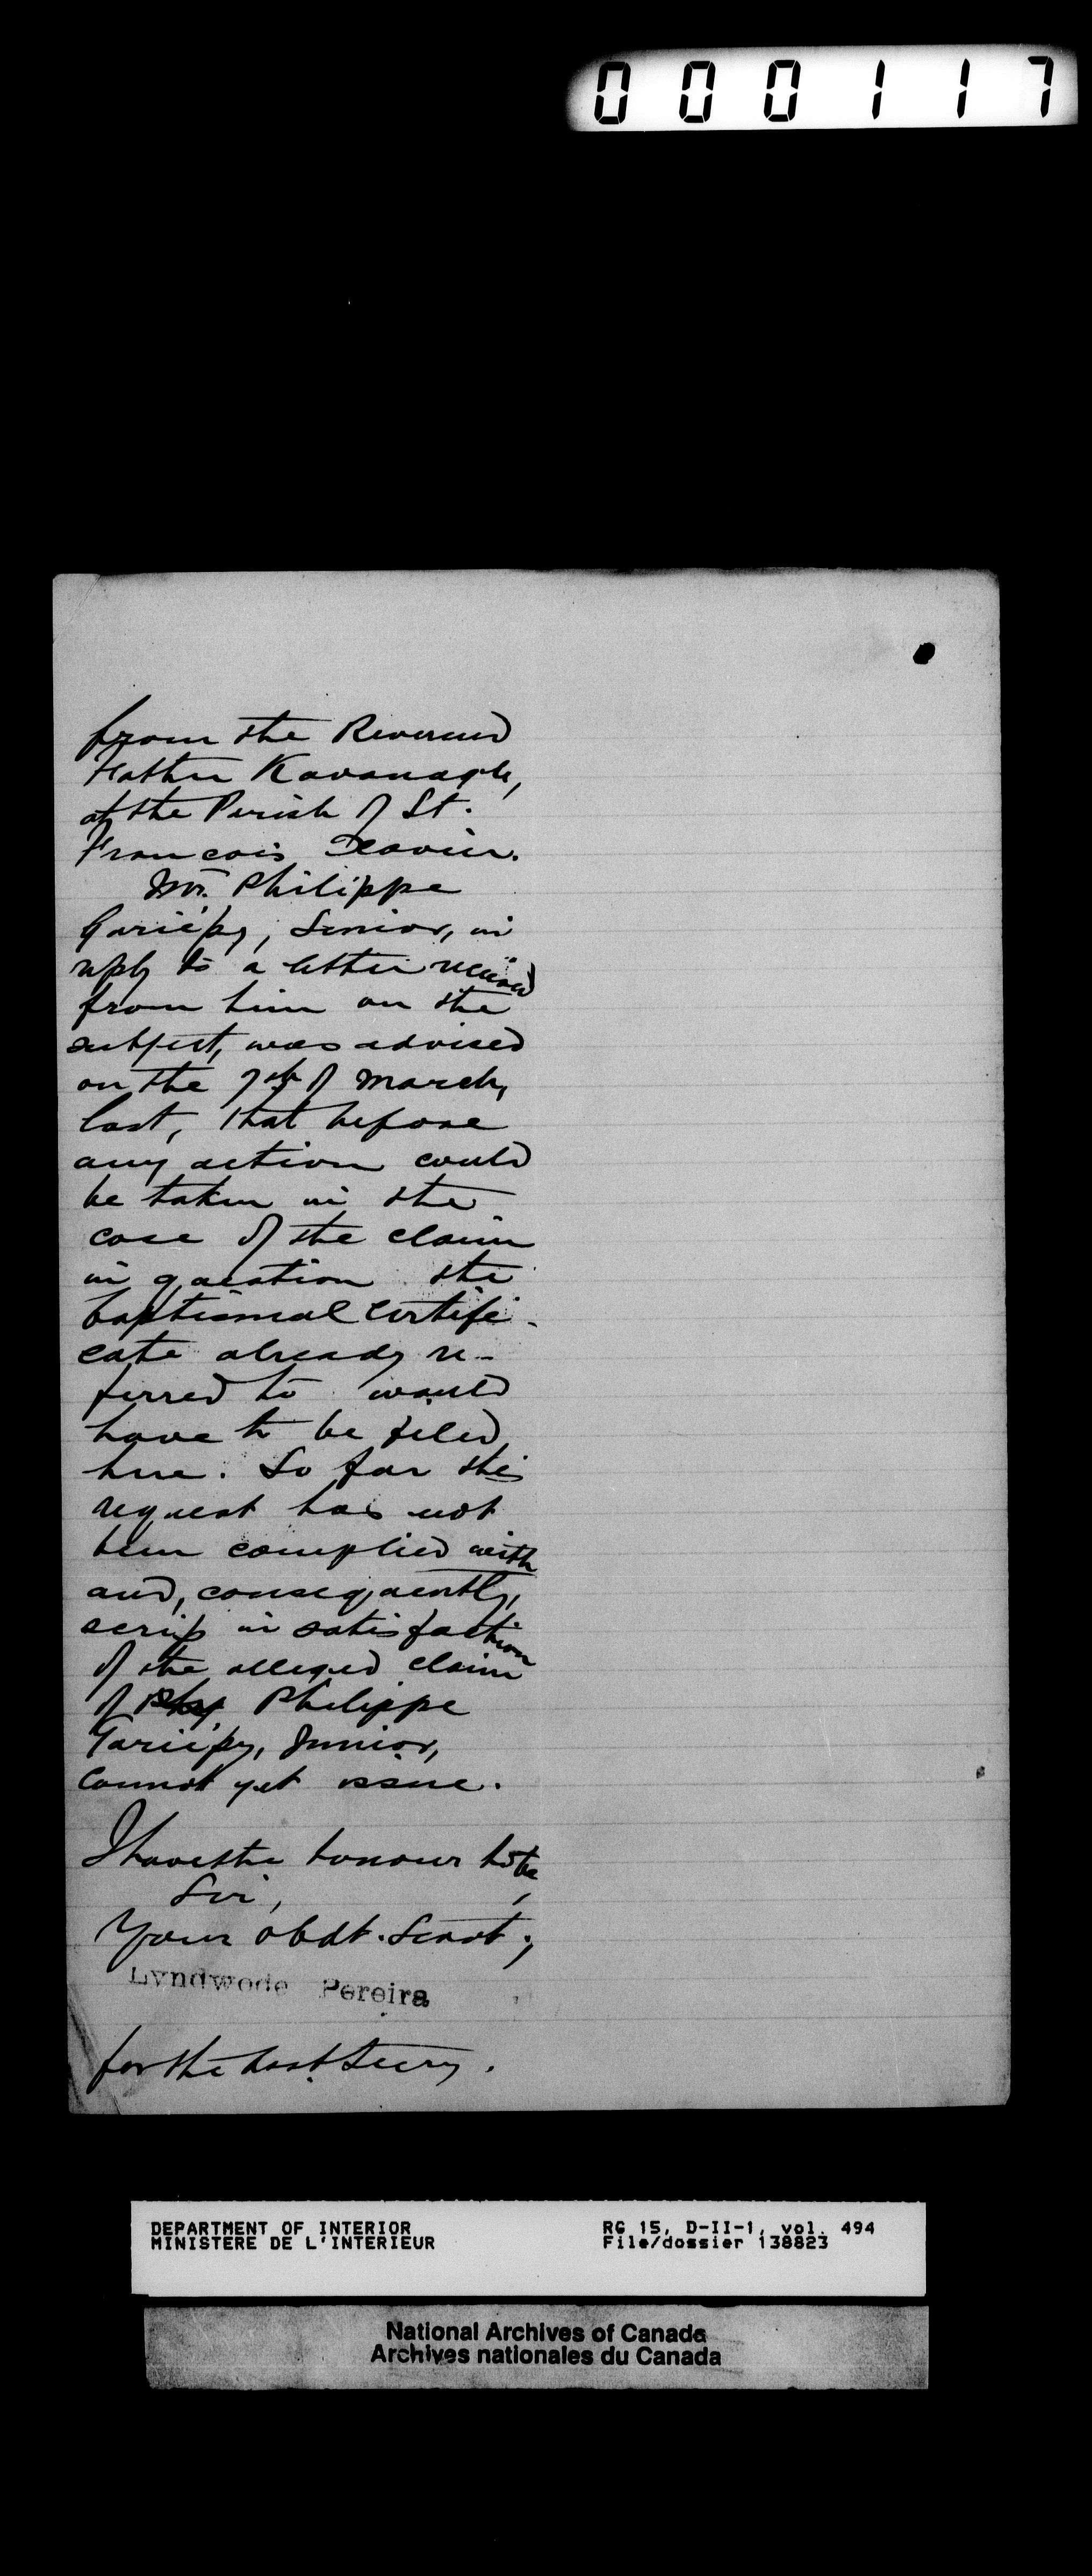 000117
from the Reverend
Father Kavanagh,
of the Parish of St.
Francois Xavier.
Mr. Philippe
Gariépy, Senior, in
reply to a letter received
from him on the
subject, was advised
on the 7th of March,
last, that before
any action could
be taken in the
case of the claim
in question the
baptismal certifi-
cate already re-
ferred to would
have to be filed
here. So far this
request has not
been complied with
and, consequently,
scrip in satisfaction
of the alleged claim
of Philippe
Gariépy, Junior,
cannot yet issue.
I have the honour to be,
Sir,
Your obdt. Servt.,
Lyndwode Pereira
for the Asst. Secry.
DEPARTMENT OF INTERIOR
MINISTERE DE L'INTERIEUR
RG 15, D-II-1, vol. 494
File/dossier 138823
National Archives of Canada
Archives nationales du Canada